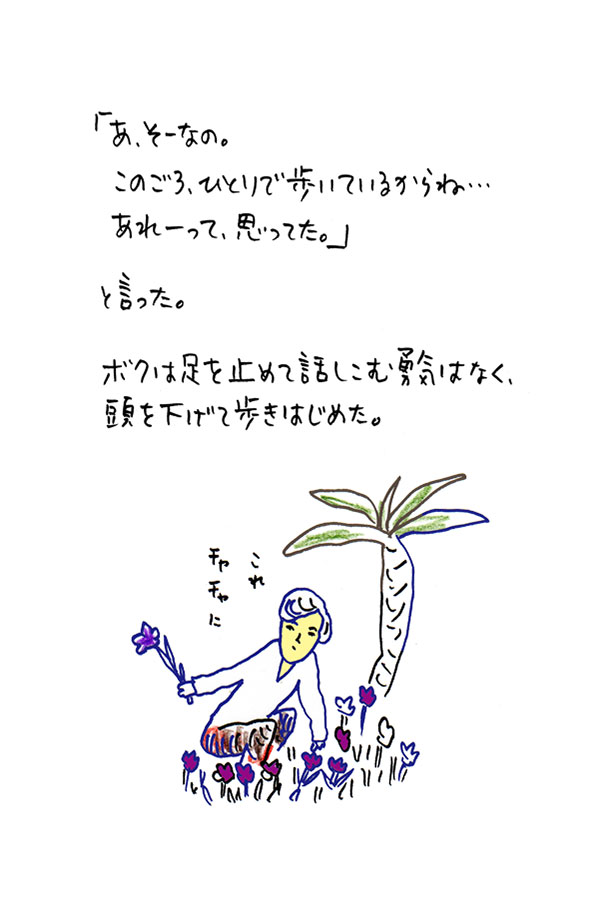 「あ、そーなの。
このごろ、ひとりで歩いているからね…
あれーって、思ってた。」
と言った。
ボクは足を止めて話しこむ勇気はなく、
頭を下げて歩きはじめた。
これ
チャチャに